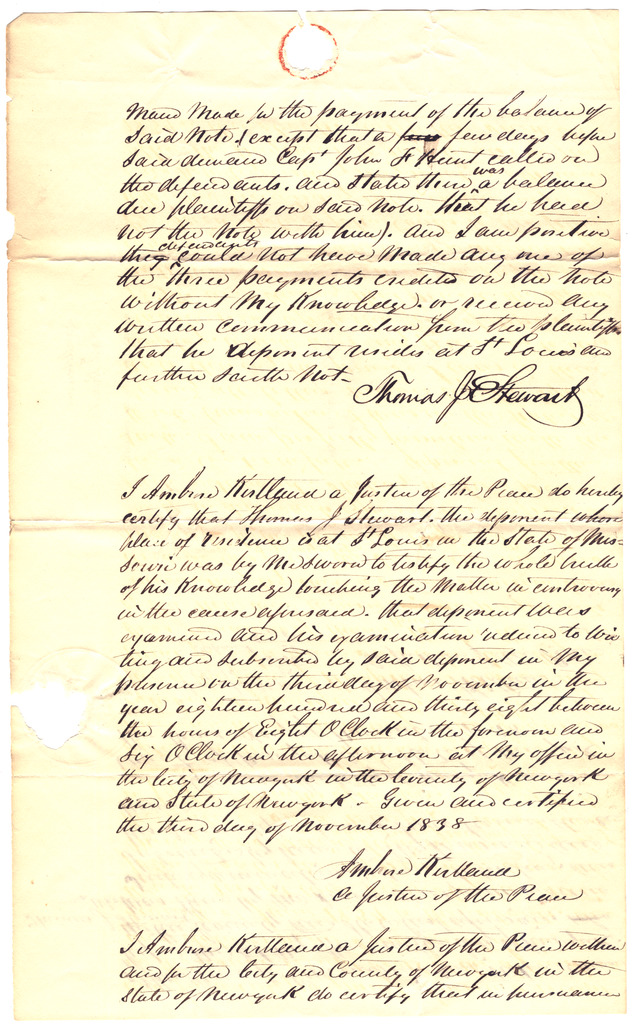 mand made for the payment of the balance of
said note (except that a few days before
said demand Capt John F Hunt called on
the defendants. and stated there was a balance
due plaintiffs on said note. that he had
not the note with him). and I am positive
they defendants could not have made any one of
the three payments credited on the note
without my knowledge. or receive any
written communication from the plaintiffs.
that he deponent resides at St Louis and
further saith not-
Thomas J Stewart
I Ambrose Kirtland a Justice of the Peace do hereby
certify that Thomas J Stewart. the deponent whose
place of residence is at St Louis in the State of Mis=
souri was by me sworn to testify the whole truth
of his knowledge touching the matter in controversy
in the cause aforesaid. that deponent was
examined and his examination reduced to wri
ting and subscribed by said deponent in my
presence on the third day of November in the
year eighteen hundred and thirty eight between
the hours of Eight O Clock in the forenoon and
Six O Clock in the afternoon at my office in
the City of Newyork in the County of Newyork
and State of Newyork - Given and certified
the third day of November 1838
Ambrose Kirtland
a Justice of the Peace
I Ambrose Kirtland a Justice of the Peace within
and for the City and County of Newyork in the
State of Newyork do certify that in pursuance